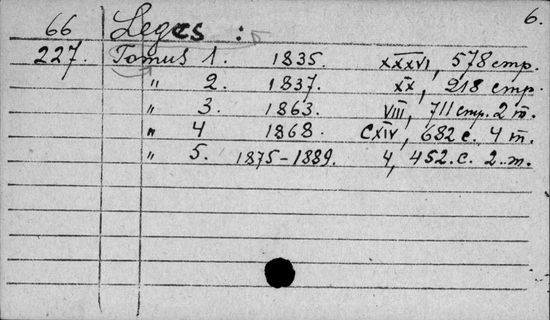 6.
66 Leges :
227. Tomus 1. 1835. XXXVI, 578 стр.
" 2. 1837. XX, 218 стр.
" 3. 1863. VIII, 711 стр. 2 т.
" 4 1868. CXIV, 682 с. 4 т.
" 5. 1875-1889. 4, 452. с. 2. т.